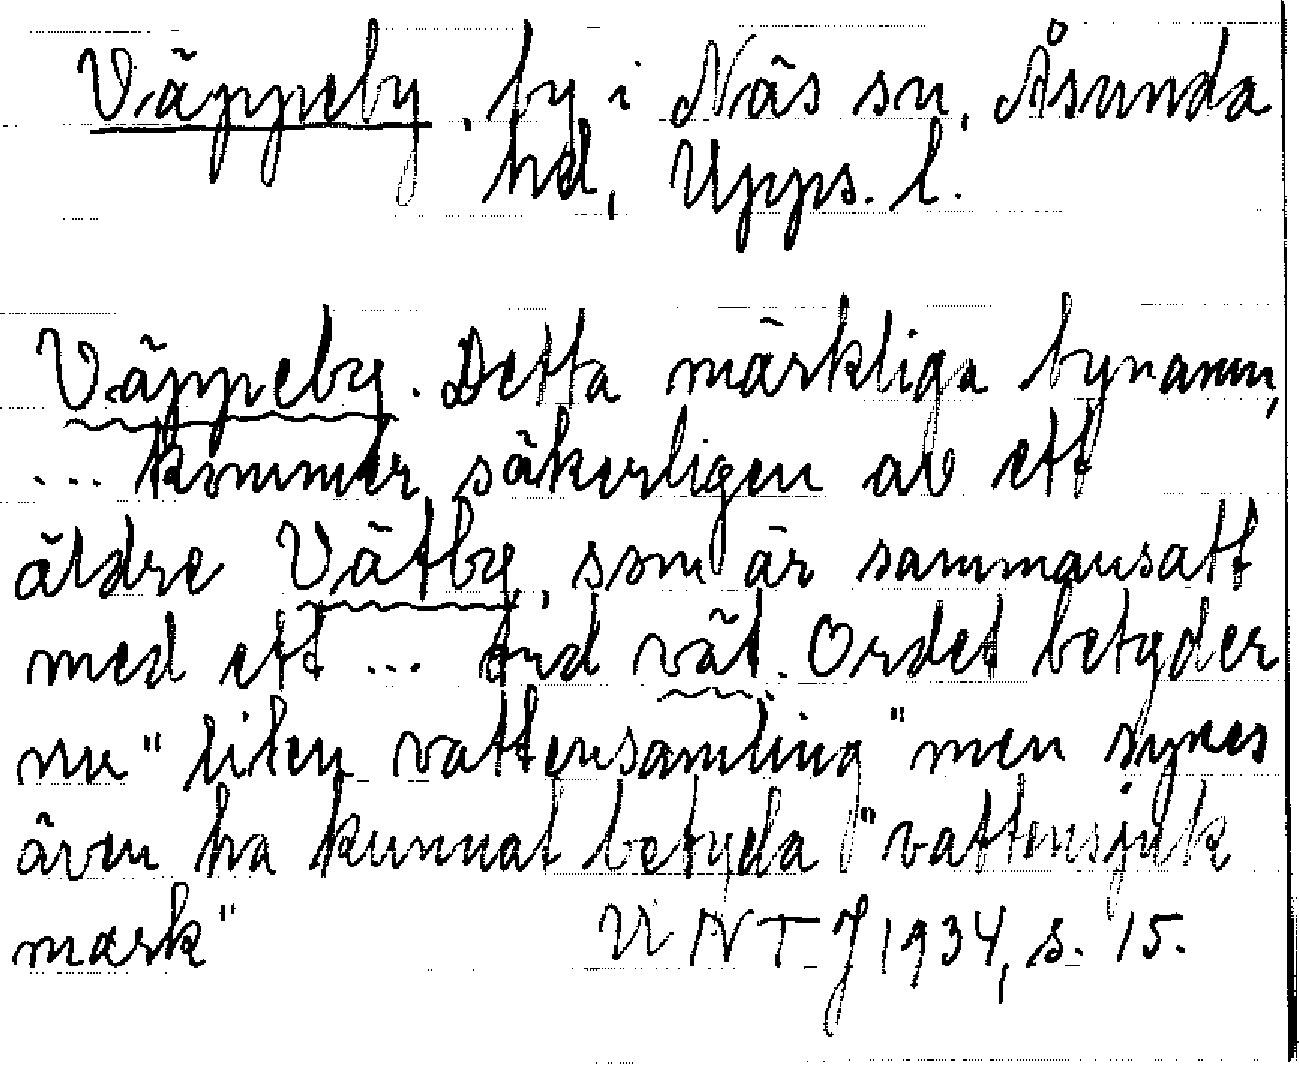 Väppeby, by i Näs sn, Åsunda
hd, Upps. l.
Väppeby. Detta märkliga bynamn,
... kommer säkerligen av ett
äldre Vätby, som är sammansatt
med ett ... ord vät. Ordet betyder
nu "liten vattensamling" men synes
även ha kunnat betyda "vattensjuk
mark" UNTJ 1934, s. 15.